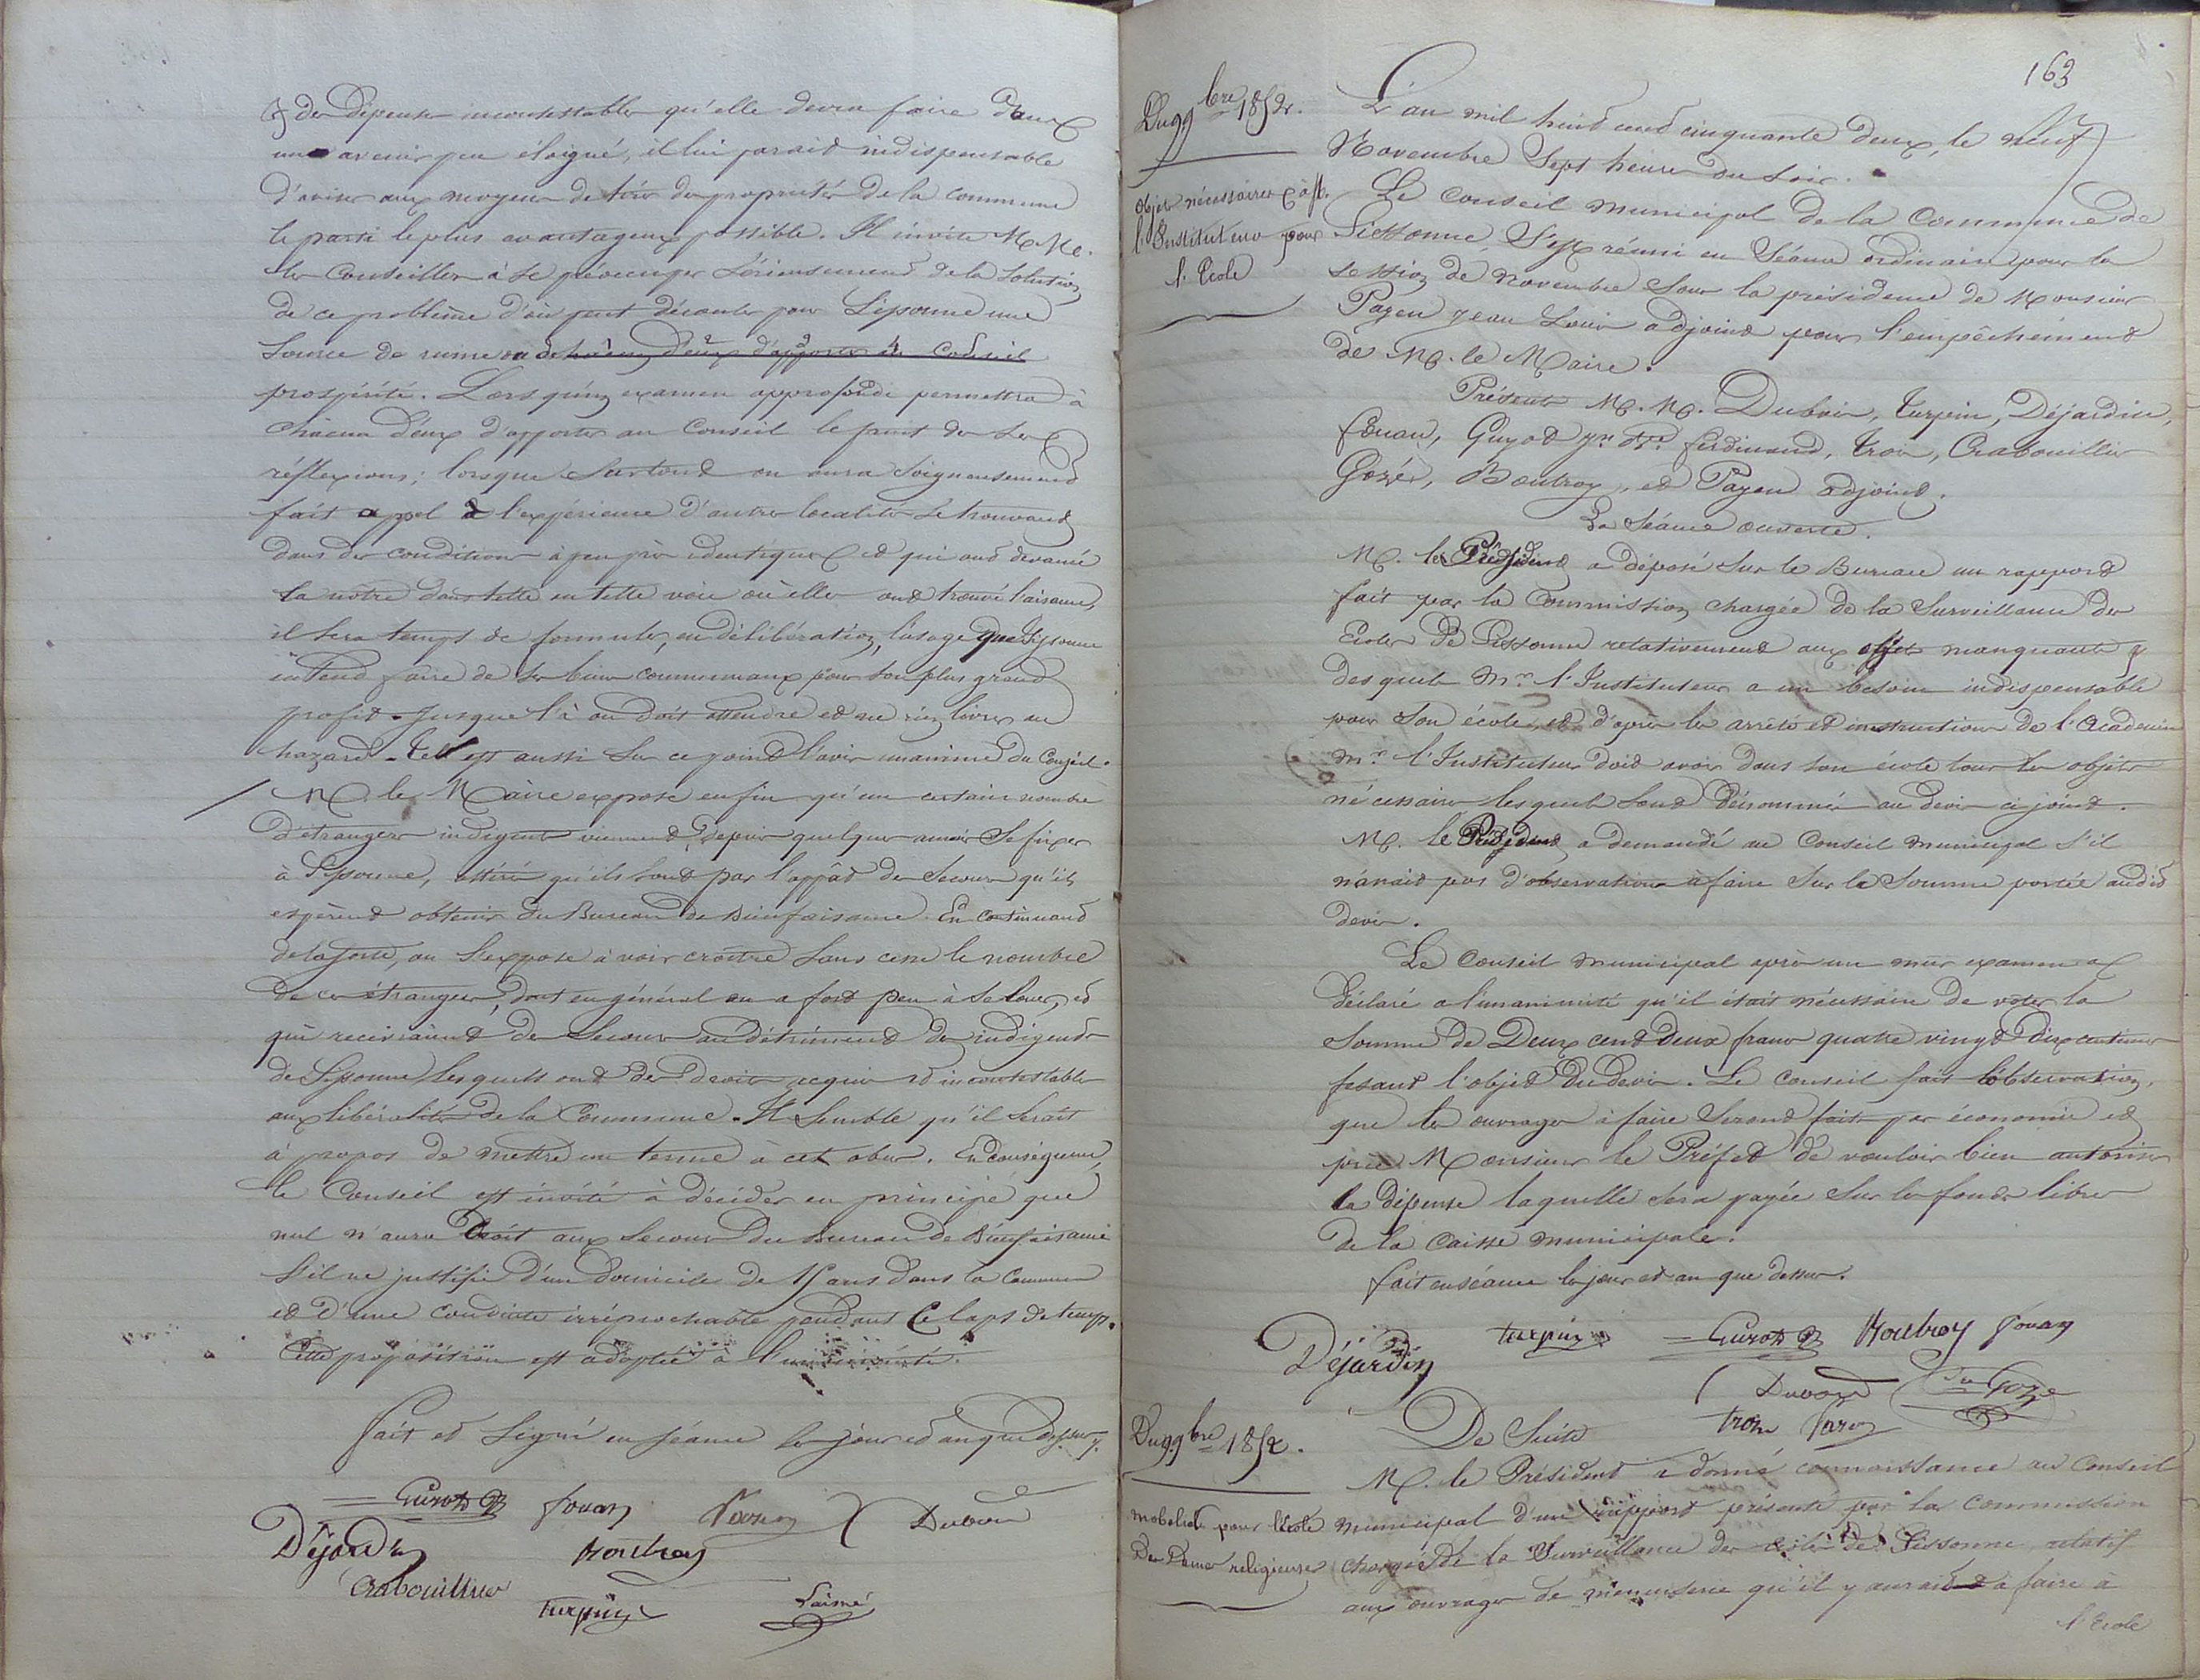 des Dépenses incontestables qu'elle devra faire dans
un avenir peu éloigné, il lui parait indispensable
d'aviser aux moyens de tirer des propriétés de la commune
le parti le plus avantageux possible. Il invite M.M.
les Conseillers à se préoccuper sérieusement de la solution
de ce problème d'où peut découler pour Sissonne une
source de ruine ou de chacun d'eux d'apporter au Conseil
prospérité. Lorsqu'un examen approfondi permettra à
chacun d'eux d'apporter au Conseil le fruit de ses
réflexions; lorsque surtout on aura soigneusement
fait appel à l'expérience d'autres localités se trouvant
dans des conditions à peu près identiques et qui ont devancé
la nôtre dans telle ou telle voie où elles ont trouvé l'aisance,
il sera temps de formuler, en délibération, l'usage que Sissonne
entend faire de ses biens communaux pour son plus grand
profit. Jusque là on doit attendre et ne rien livrer au
hazard. Tel est aussi sur ce point l'avis unanime du Conseil.
M. le Maire expose enfin qu'un certain nombre
d'étrangers indigents viennent depuis quelques mois se fixer
à Sissonne, attirés qu'ils sont par l'appât des secours qu'ils
espèrent obtenir du Bureau de Bienfaisance. En continuant
de la sorte, on s'expose à voir croître sans cesse le nombre
de ces étrangers, dont en général on a fort peu à se louer, et
qui recevraient des secours au détriment des indigents
de Sissonne lesquels ont des droits acquis et incontestables
aux libéralités de la Commune. Il semble qu'il serait
à propos de mettre un terme à cet abus. En conséquence,
le Conseil est invité à décider en principe que
nul n'aura droit aux secours du Bureau de Bienfaisance
s'il ne justifie d'un domicile de 15 ans dans la Commune
et d'une conduite irréprochable pendant ce laps de temps.
Cette proposition est adoptée à l'unanimité.
Fait et signé en séance les jour et an que dessus.
Guyot Fouan Dubois
Déjardin Boutroy
Crabouillier
Turpin Lainé
163
Du 9 9bre 1852.
Objets nécessaires à M.
l'Instituteur pour
l'Ecole
L'an mil huit cent cinquante deux, le neuf
Novembre Sept heures du soir.
Le Conseil municipal de la Commune de
Sissonne, S'est réuni en Séance ordinaire pour la
session de novembre sous la présidence de Monsieur
Payen Jean Louis adjoint pour l'empêchement
de M. le Maire.
Présents M.M. Dubois, Turpin, Déjardin,
Fouan, Guyot Ferdinand, Tron, Crabouillier
Gozé, Boutroy, et Payen adjoint.
La Séance ouverte.
M. le Président a déposé sur le Bureau un rapport
fait par la Commission chargée de la Surveillance des
Ecoles de Sissonne relativement aux objets manquants
desquels Mr l'Instituteur a un besoin indispensable
pour son école, et d'après les arrêtés et instructions de l'Académie
Mr l'Instituteur doit avoir dans son école tous les objets
nécessaires lesquels sont dénommés au devis ci joint.
M. le Président a demandé au Conseil municipal s'il
n'avait pas d'observations à faire sur la somme portée audit
devis.
Le Conseil municipal après un mur examen a
déclaré a l'unanimité qu'il était nécessaire de voter la
somme de Deux cent deux francs quatre vingt dix centimes
fesant l'objet du devis. Le Conseil fait l'observation,
que les ouvrages à faire seront faits par économie et
prie Monsieur le Préfet de vouloir bien autoriser
la dépense laquelle sera payée sur les fonds libres
de la Caisse municipale.
Fait en séance les jour et an que dessus.
Déjardin Turpin Guyot Boutroy Fouan
Dubois Gozé
Tron
Du 9 9bre 1852.
Mobilier pour l'école
des Dames religieuses
De Suite
M. le Président a donné connaissance au Conseil
municipal d'un rapport présenté par la Commission
chargée de la Surveillance des écoles de Sissonne relatif
aux ouvrages de menuiserie qu'il y aurait à faire à
l'Ecole